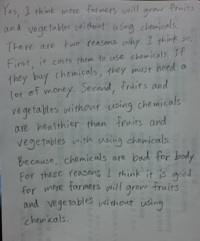 Yes, I think more farmers will grow fruits
and vegetables without using chemicals.
There are two reasons why I think so.
First, it costs them to use chemicals. If
they buy chemicals, they must need a
lot of money. Second, fruits and
vegetables without using chemicals
are healthier than fruits and
vegetables with using chemicals.
Because, chemicals are bad for body.
For these reasons I think it is good
for more farmers will grow fruits
and vegetables without using
chemicals.